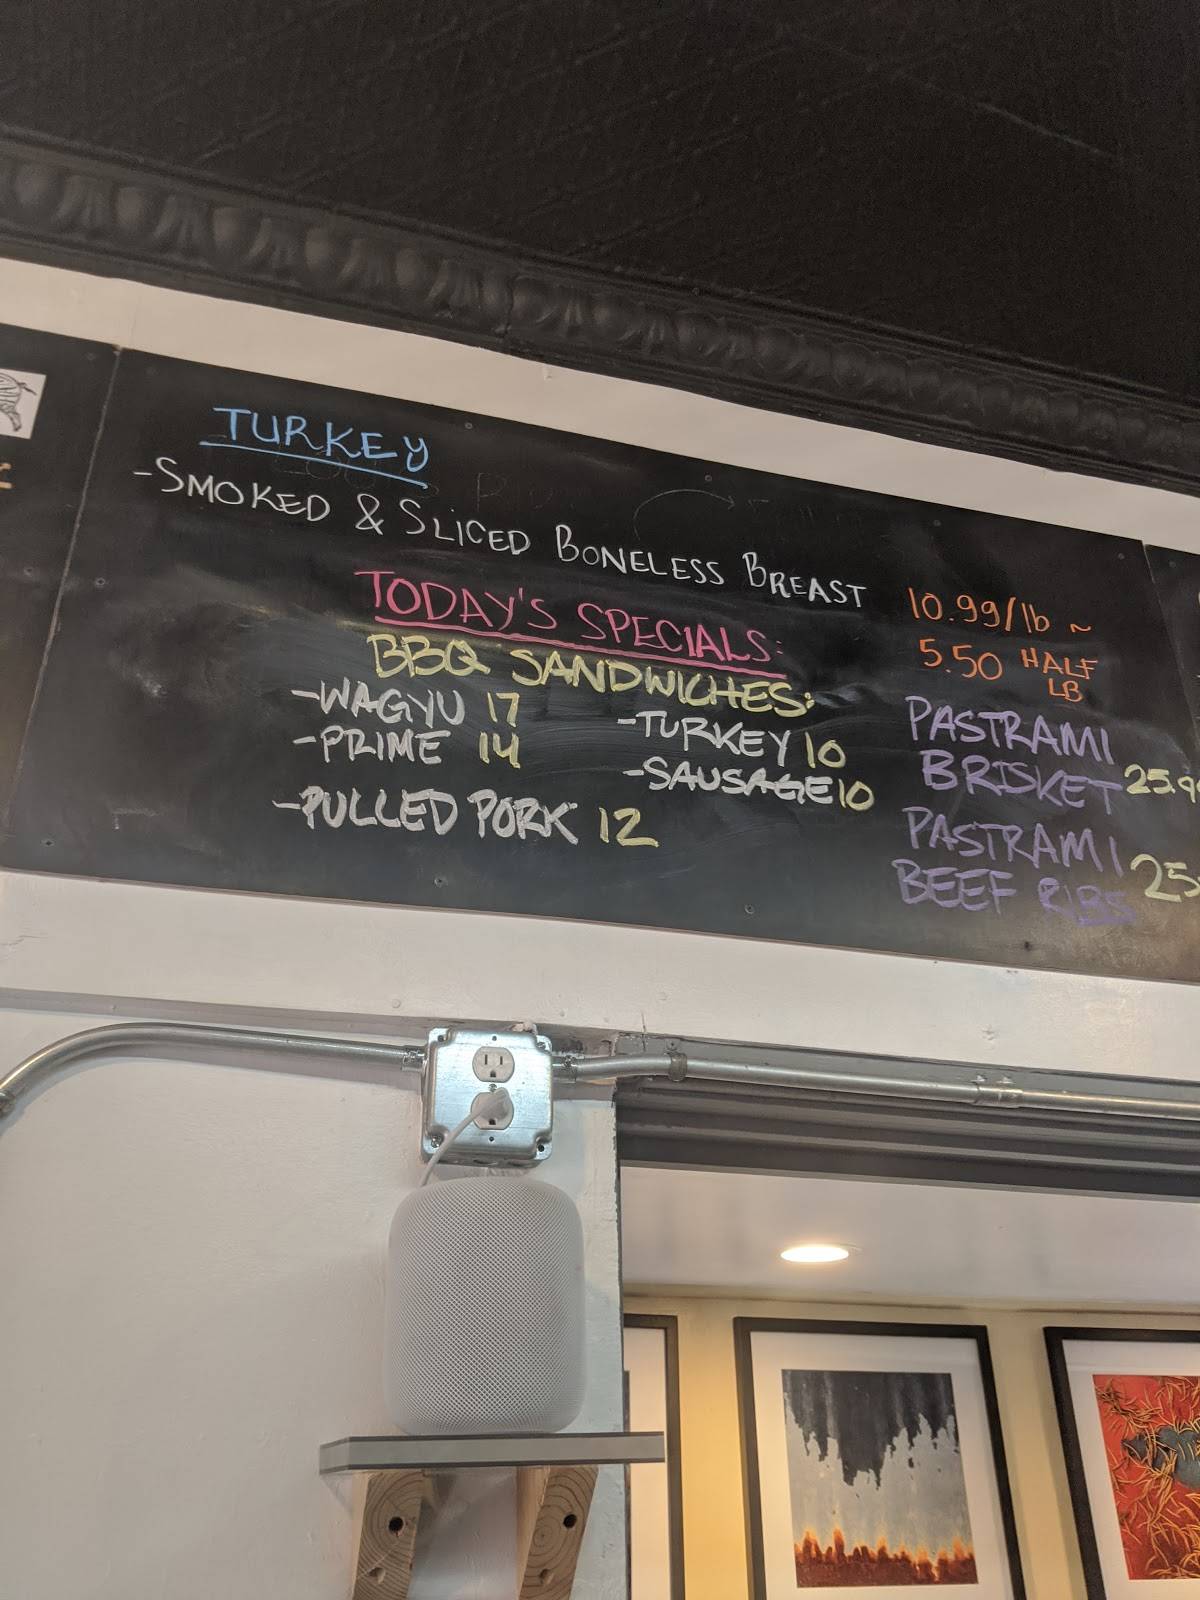 TURKEY
-SMOKED & SLICED BONELESS BREAST 10.99/lb ~
5.50 HALF LB
TODAY'S SPECIALS:
BBQ SANDWICHES:
-WAGYU 17
-PRIME 14
-PULLED PORK 12
-TURKEY 10
-SAUSAGE 10
PASTRAMI
BRISKET 25.9
PASTRAMI
BEEF RIBS 25